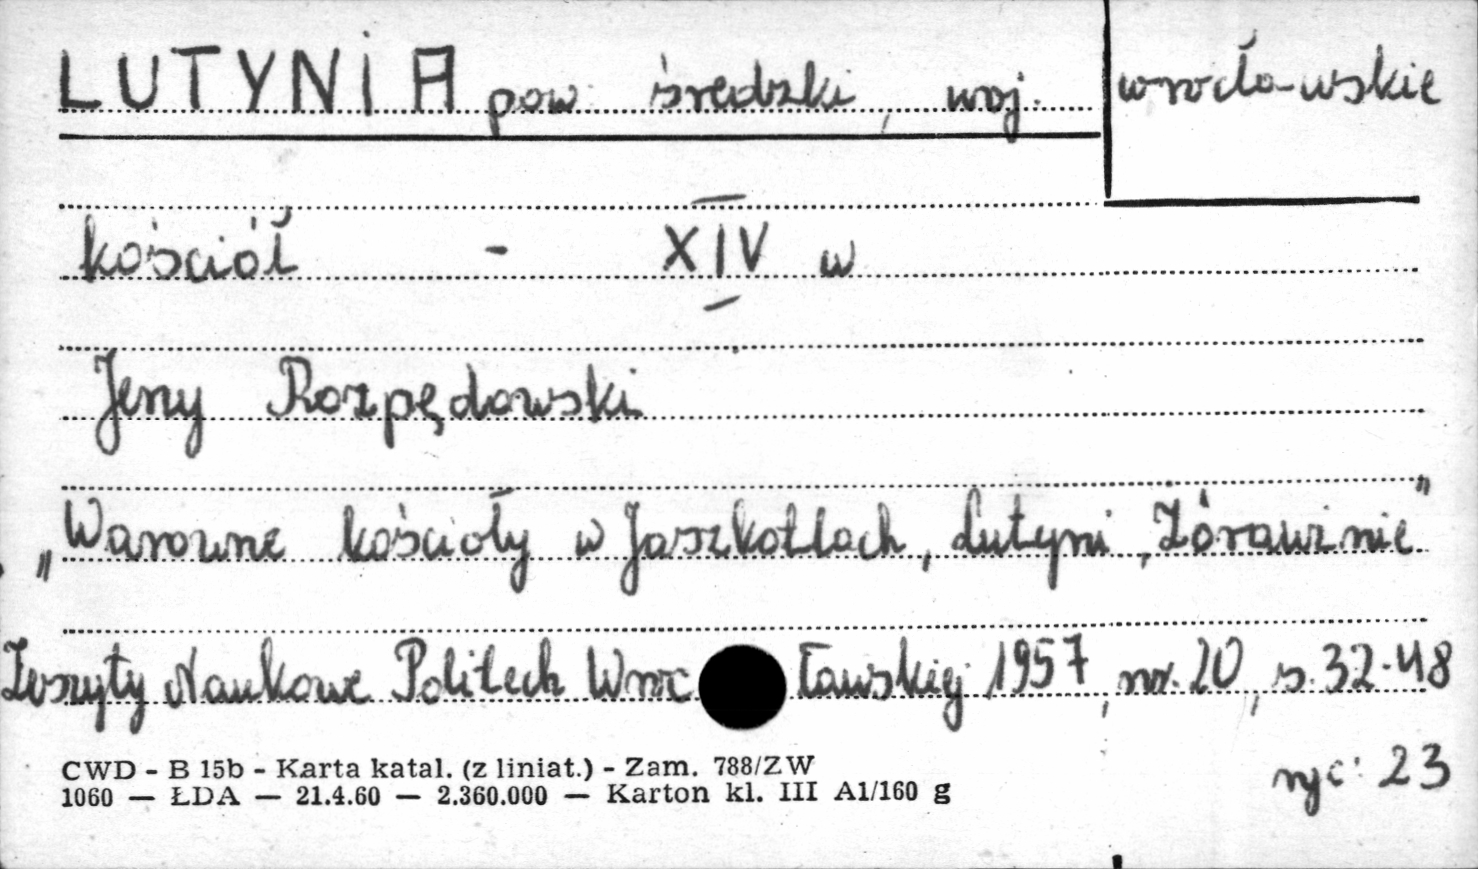 LUTYNIA pow. średzki, woj. wrocławskie
kościół - XIV w
Jerzy Rozpędowski
„Warowne kościoły w Jaszkotlach, Lutyni, Żórawinie"
Zeszyty Naukowe Politech Wrocławskiej 1957, nr. 20, s. 32-48
ryc: 23
CWD - B 15b - Karta katal. (z liniat.) - Zam. 788/ZW
1060 — ŁDA — 21.4.60 — 2.360.000 — Karton kl. III A1/160 g